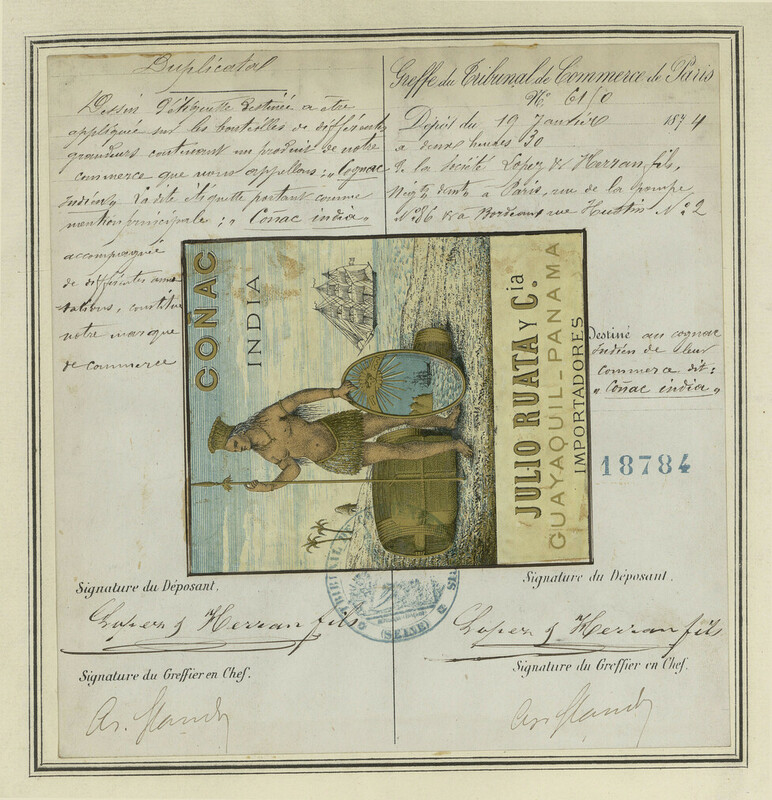 Duplicata
Dessin d'étiquette destinée a être
appliquée sur les bouteilles de différentes
grandeurs contenant un produit de notre
commerce que nous appellons: "Cognac
Indien". La dite étiquette portant comme
mention principale; "Coñac india"
accompagnée
de différentes anno
tations, constitue
notre marque
de commerce
Greffe du Tribunal de Commerce de Paris
N°. 61/0
Dépôt du 19 Janvier 1874
a deux heures 30
de la société Lopez & Herran fils,
Négts demt a Paris, rue de la pompe
N° 36 & a Bordeaux rue Hustin N° 2
Destiné au cognac
Indien de leur
commerce dit:
"Coñac india"
18784
COÑAC
INDIA
JULIO RUATA Y Cia.
GUAYAQUIL_PANAMA
IMPORTADORES
TRIBUNAL
(SEINE)
Signature du Déposant.
Lopez & Herran fils
Signature du Greffier en Chef.
Signature du Déposant.
Lopez & Herran fils
Signature du Greffier en Chef.